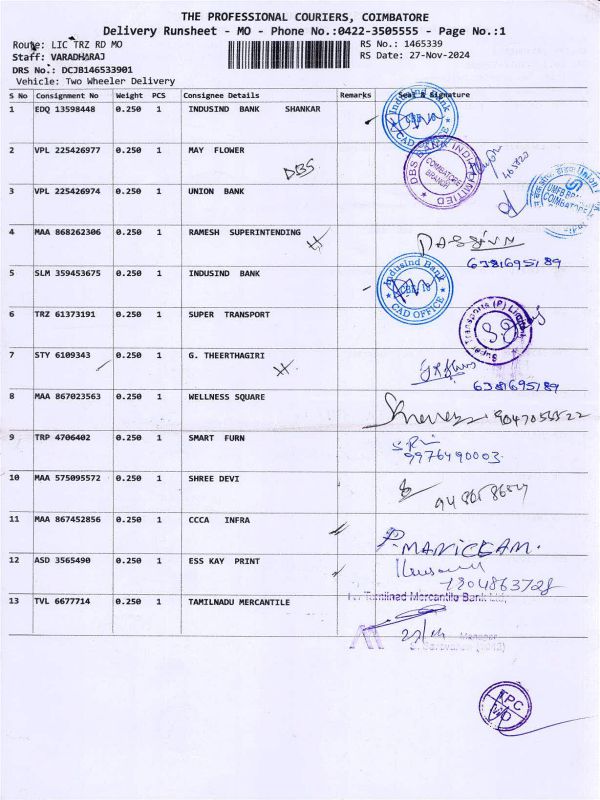 THE PROFESSIONAL COURIERS, COIMBATORE
Delivery Runsheet - MO - Phone No.:0422-3505555 - Page No.:1
Route: LIC TRZ RD MO
RS No.: 1465339
Staff: VARADHARAJ
RS Date: 27-Nov-2024
DRS No.: DCJB146533901
Vehicle: Two Wheeler Delivery
S No Consignment No Weight PCS Consignee Details Remarks Seal & Signature
1 EDQ 13598448 0.250 1 INDUSIND BANK SHANKAR
Indusind Bank
CAD OFFICE
2 VPL 225426977 0.250 1 MAY FLOWER
DBS
DBS BANK INDIA LIMITED
COIMBATORE BRANCH
3 VPL 225426974 0.250 1 UNION BANK
Union
COIMBATORE
4 MAA 868262306 0.250 1 RAMESH SUPERINTENDING
6381695189
5 SLM 359453675 0.250 1 INDUSIND BANK
Indusind Bank
CAD OFFICE
6 TRZ 61373191 0.250 1 SUPER TRANSPORT
Super Transports (P) Limited
7 STY 6109343 0.250 1 G. THEERTHAGIRI
6381695189
8 MAA 867023563 0.250 1 WELLNESS SQUARE
9 TRP 4706402 0.250 1 SMART FURN
9976490003
10 MAA 575095572 0.250 1 SHREE DEVI
11 MAA 867452856 0.250 1 CCCA INFRA
P. MANICKAM.
12 ASD 3565490 0.250 1 ESS KAY PRINT
13 TVL 6677714 0.250 1 TAMILNADU MERCANTILE
Tamilnad Mercantile Bank Ltd.
Manager
TPC